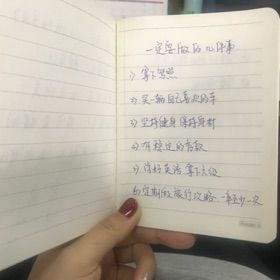 一定要做的几件事
1) 拿下驾照
2) 买一辆自己喜欢的车
3) 坚持健身 保持身材
4) 有稳定的存款
5) 学好英语 拿下六级
6) 定期做旅行攻略 一年至少一次